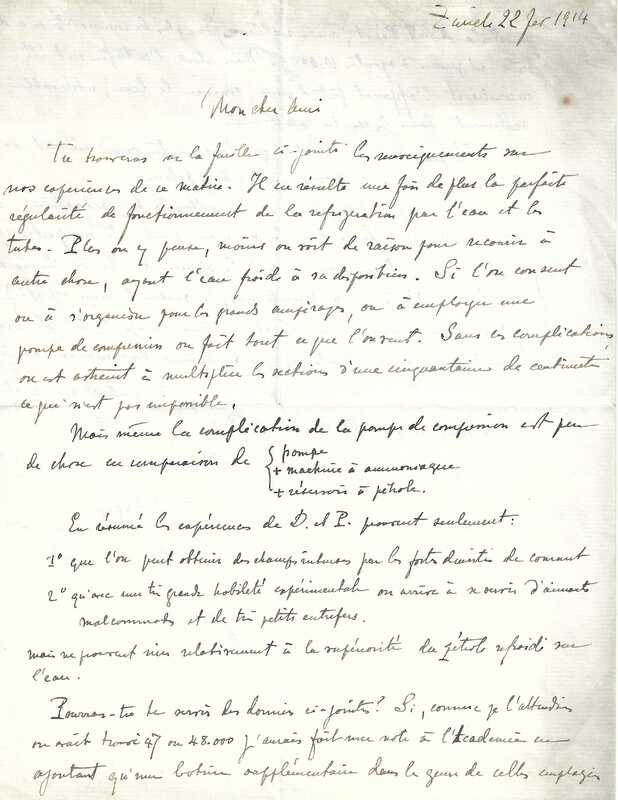 Zürich 22 fev 1914
Mon cher Ami
Tu trouveras sur la feuille ci-jointe les renseignements sur
nos expériences de ce matin. Il en résulte une fois de plus la parfaite
régularité de fonctionnement de la refrigeration par l'eau et les
tubes. Plus on y pense, moins on voit de raison pour recourir à
autre chose, ayant l'eau froide à sa disposition. Si l'on consent
ou à s'organiser pour les grands ampérages, ou à employer une
pompe de compression on fait tout ce que l'on veut. Sans ces complications
on est astreint à multiplier les sections d'une cinquantaine de centimètres
ce qui n'est pas impossible.
Mais même la complication de la pompe de compression est peu
de chose en comparaison de { pompe
+ machine à ammoniaque
+ réservoir à pétrole.
En résumé les expériences de D. et P. prouvent seulement:
1° que l'on peut obtenir des champs intenses par les fortes densités de courant
2° qu'avec une très grande habileté expérimentale on arrive à se servir d'aimants
malcommodes et de très petits entrefers.
mais ne prouvent rien relativement à la supériorité du pétrole refroidi sur
l'eau.
Pourras-tu te servir des données ci-jointes? Si, comme je l'attendais
on avait trouvé 47 ou 48.000 j'aurais fait une note à l'Academie en
ajoutant qu'une bobine supplémentaire dans le genre de celles employées